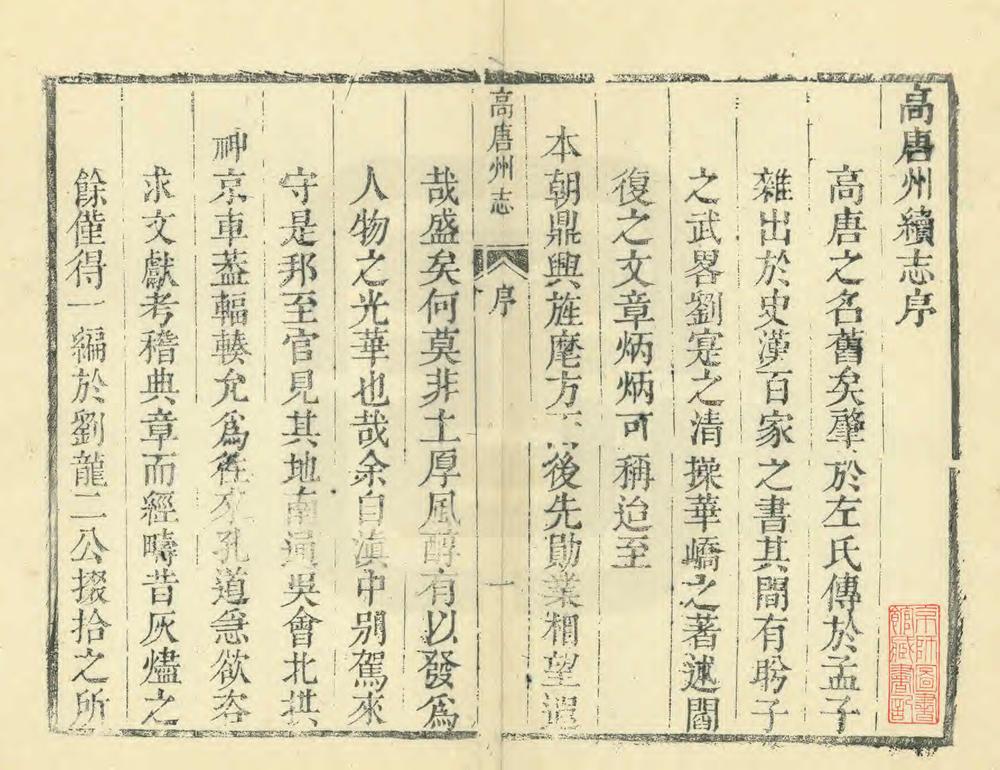 高唐州續志序
高唐之名舊矣肇於左氏傳於孟子
雜出於史漢百家之書其間有盼子
之武畧劉寔之清操華嶠之著述閻
復之文章炳炳可稱迨至
本朝鼎興旌麾方後先勛業相望
高唐州志
序
一
哉盛矣何莫非土厚風醇有以發爲
人物之光華也哉余自滇中别駕來
守是邦至官見其地南通吳會北拱
神京車葢輻輳允爲徃來孔道急欲咨
求文獻考稽典章而經疇昔灰燼之
餘僅得一編於劉龍二公掇拾之所
京師圖書館藏書記